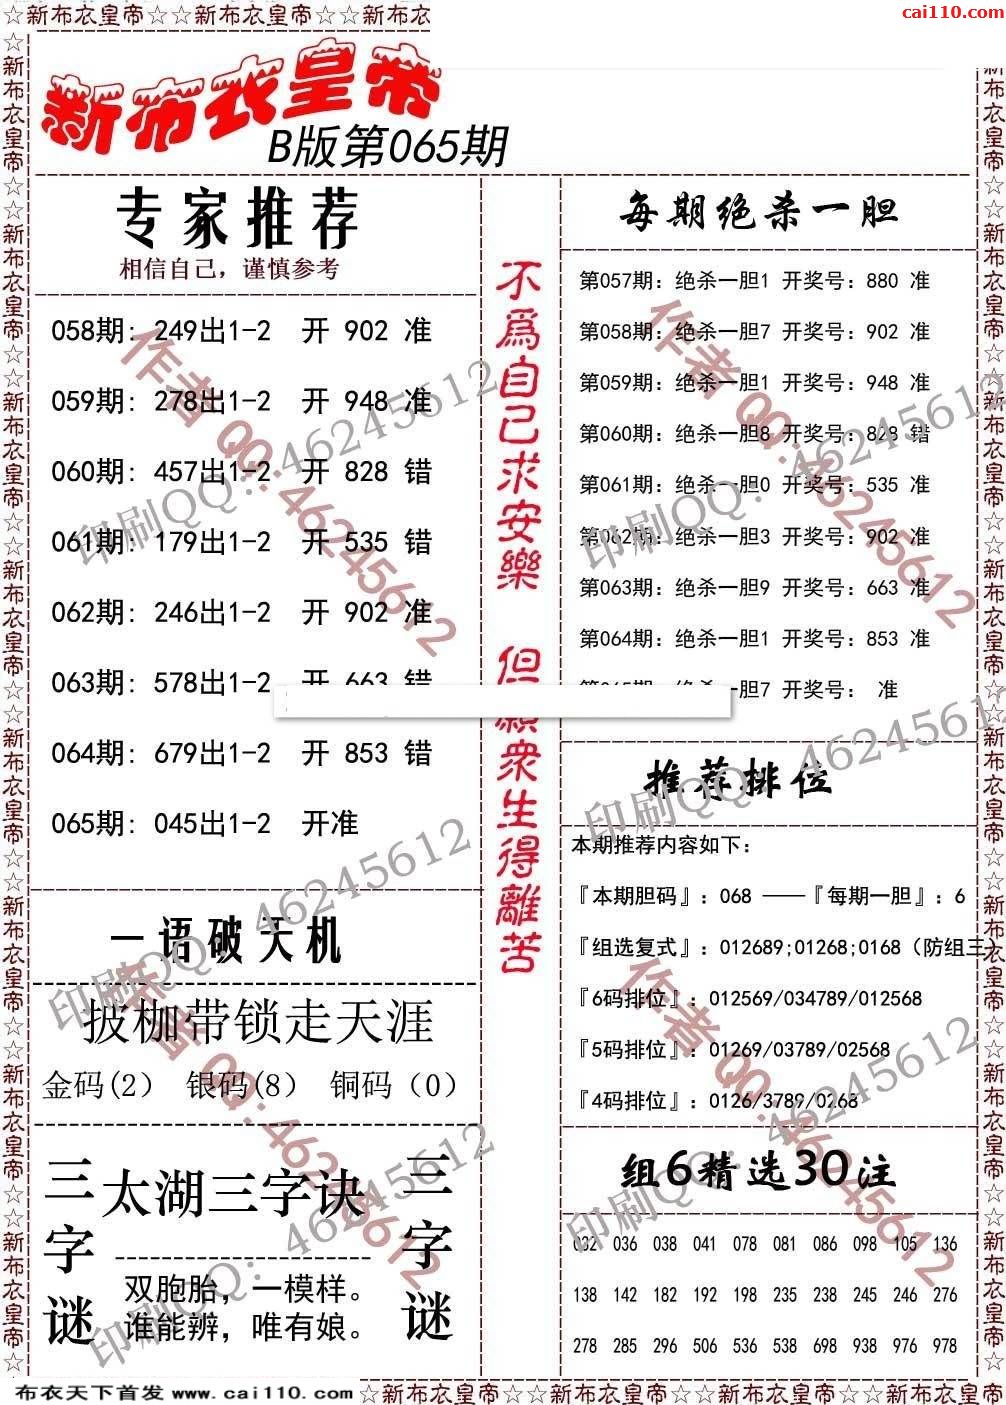 ☆新布衣皇帝☆☆新布衣皇帝☆☆新布衣
cai110.com
新布衣皇帝
B版第065期
专家推荐
相信自己，谨慎参考
058期: 249出1-2 开 902 准
059期: 278出1-2 开 948 准
060期: 457出1-2 开 828 错
061期: 179出1-2 开 535 错
062期: 246出1-2 开 902 准
063期: 578出1-2 开 663 错
064期: 679出1-2 开 853 错
065期: 045出1-2 开准
一语破天机
披枷带锁走天涯
金码(2) 银码(8) 铜码（0）
三字谜
太湖三字诀
双胞胎，一模样。
谁能辨，唯有娘。
三字谜
不為自己求安樂 但願衆生得離苦
每期绝杀一胆
第057期: 绝杀一胆1 开奖号: 880 准
第058期: 绝杀一胆7 开奖号: 902 准
第059期: 绝杀一胆1 开奖号: 948 准
第060期: 绝杀一胆8 开奖号: 828 错
第061期: 绝杀一胆0 开奖号: 535 准
第062期: 绝杀一胆3 开奖号: 902 准
第063期: 绝杀一胆9 开奖号: 663 准
第064期: 绝杀一胆1 开奖号: 853 准
第065期: 绝杀一胆7 开奖号: 准
推荐排位
本期推荐内容如下:
『本期胆码』: 068 ——『每期一胆』: 6
『组选复式』: 012689;01268;0168（防组三）
『6码排位』: 012569/034789/012568
『5码排位』: 01269/03789/02568
『4码排位』: 0126/3789/0268
组6精选30注
032 036 038 041 078 081 086 098 105 136
138 142 182 192 198 235 238 245 246 276
278 285 296 506 536 538 698 938 976 978
作者 QQ: 46245612
印刷QQ: 46245612
作者 QQ: 46245612
印刷QQ: 46245612
印刷QQ: 46245612
印刷QQ: 46245612
作者 QQ: 46245612
作者 QQ: 46245612
印刷QQ: 46245612
印刷QQ: 46245612
布衣天下首发 www.cai110.com
☆新布衣皇帝☆☆新布衣皇帝☆☆新布衣皇帝☆☆新布衣皇帝☆